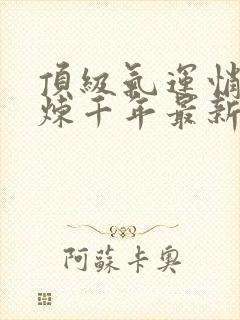 頂級氣運悄
煉千年最新
阿蘇卡奧